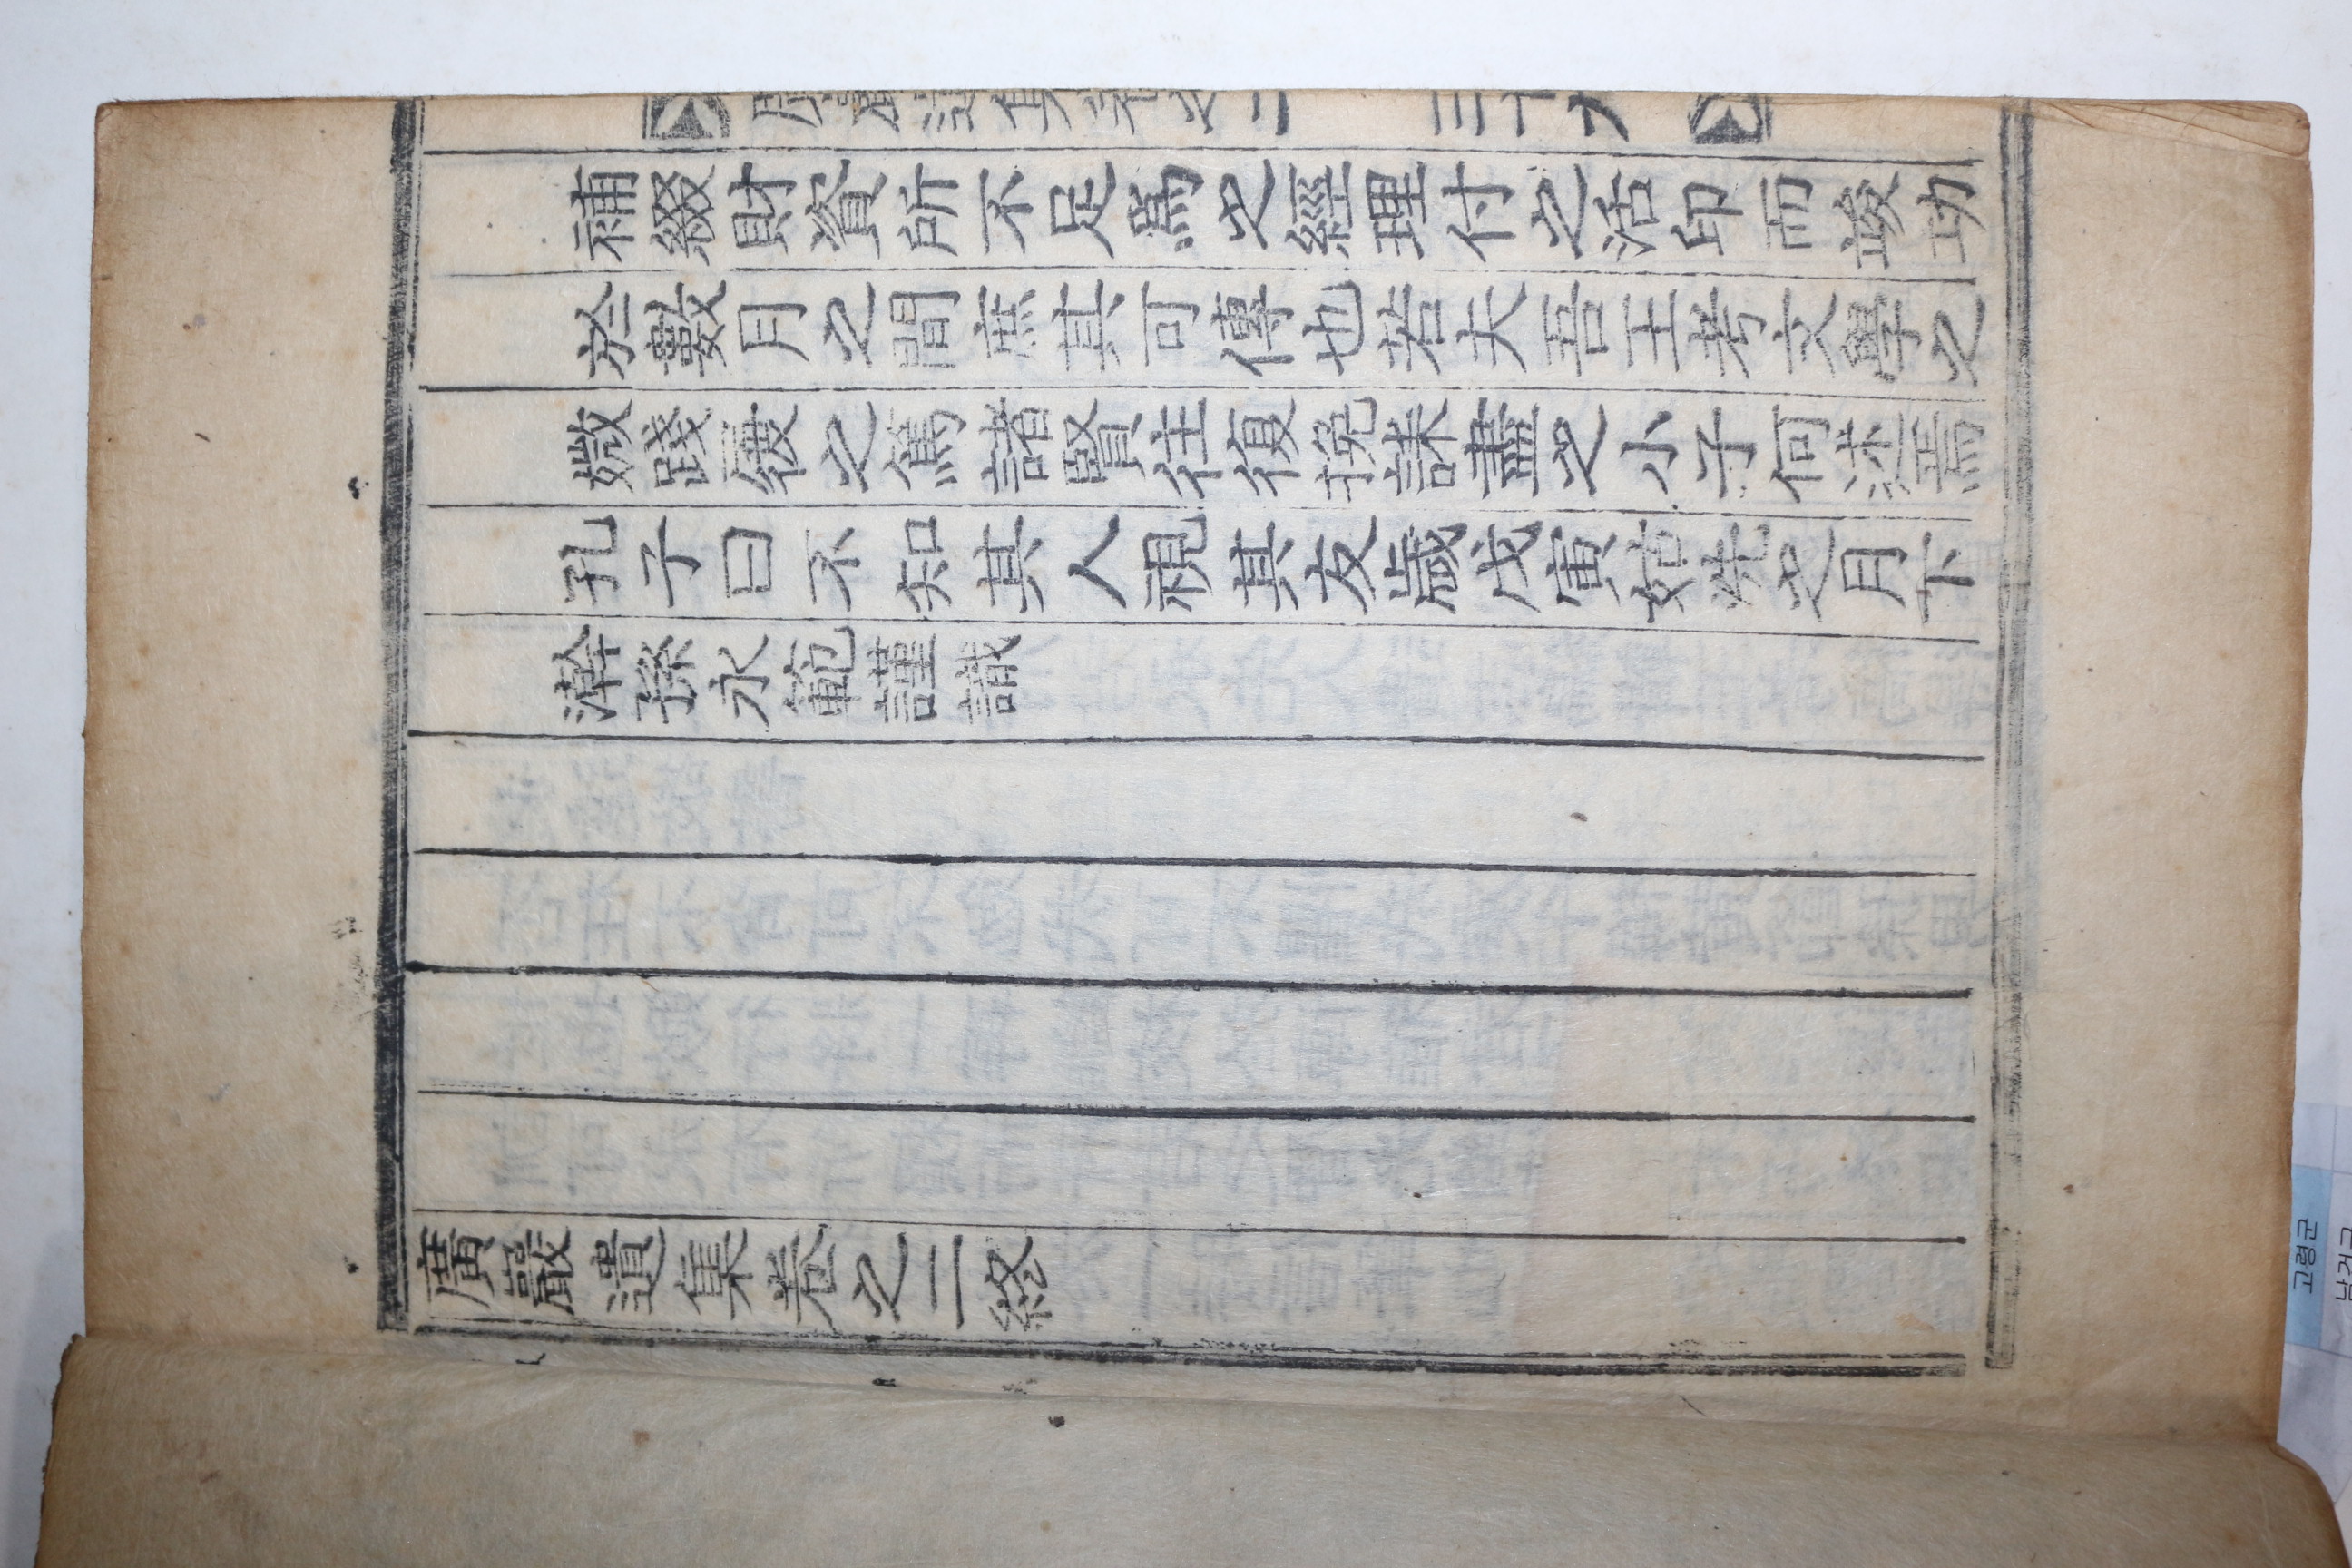 廣巖遺集卷之二 三十九
補綴財資所不足爲之經理付之活印而竣功
於數月之間庶其可傳也若夫吾王考文學之
媺踐履之篤諸賢往復挽誄盡之小子何述焉
孔子曰不知其人視其友歲戊寅姑洗之月下
澣孫永範謹識
廣巖遺集卷之二終
고령군